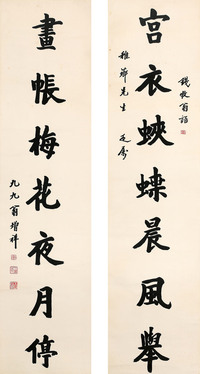 宫衣蛺蝶晨風舉
錢牧翁語
稚茀先生 正屬
畫帳梅花夜月停
九九翁增祥